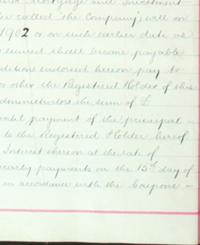 and Mortgage and Investment
called the Company) will on
1902 or on such earlier date as
secured shall become payable
conditions endorsed hereon pay to
or other the Registered Holder of this
administrators the sum of £
payment of the principal
to the Registered Holder hereof
Interest thereon at the rate of
yearly payments on the 15th day of
in accordance with the Coupons